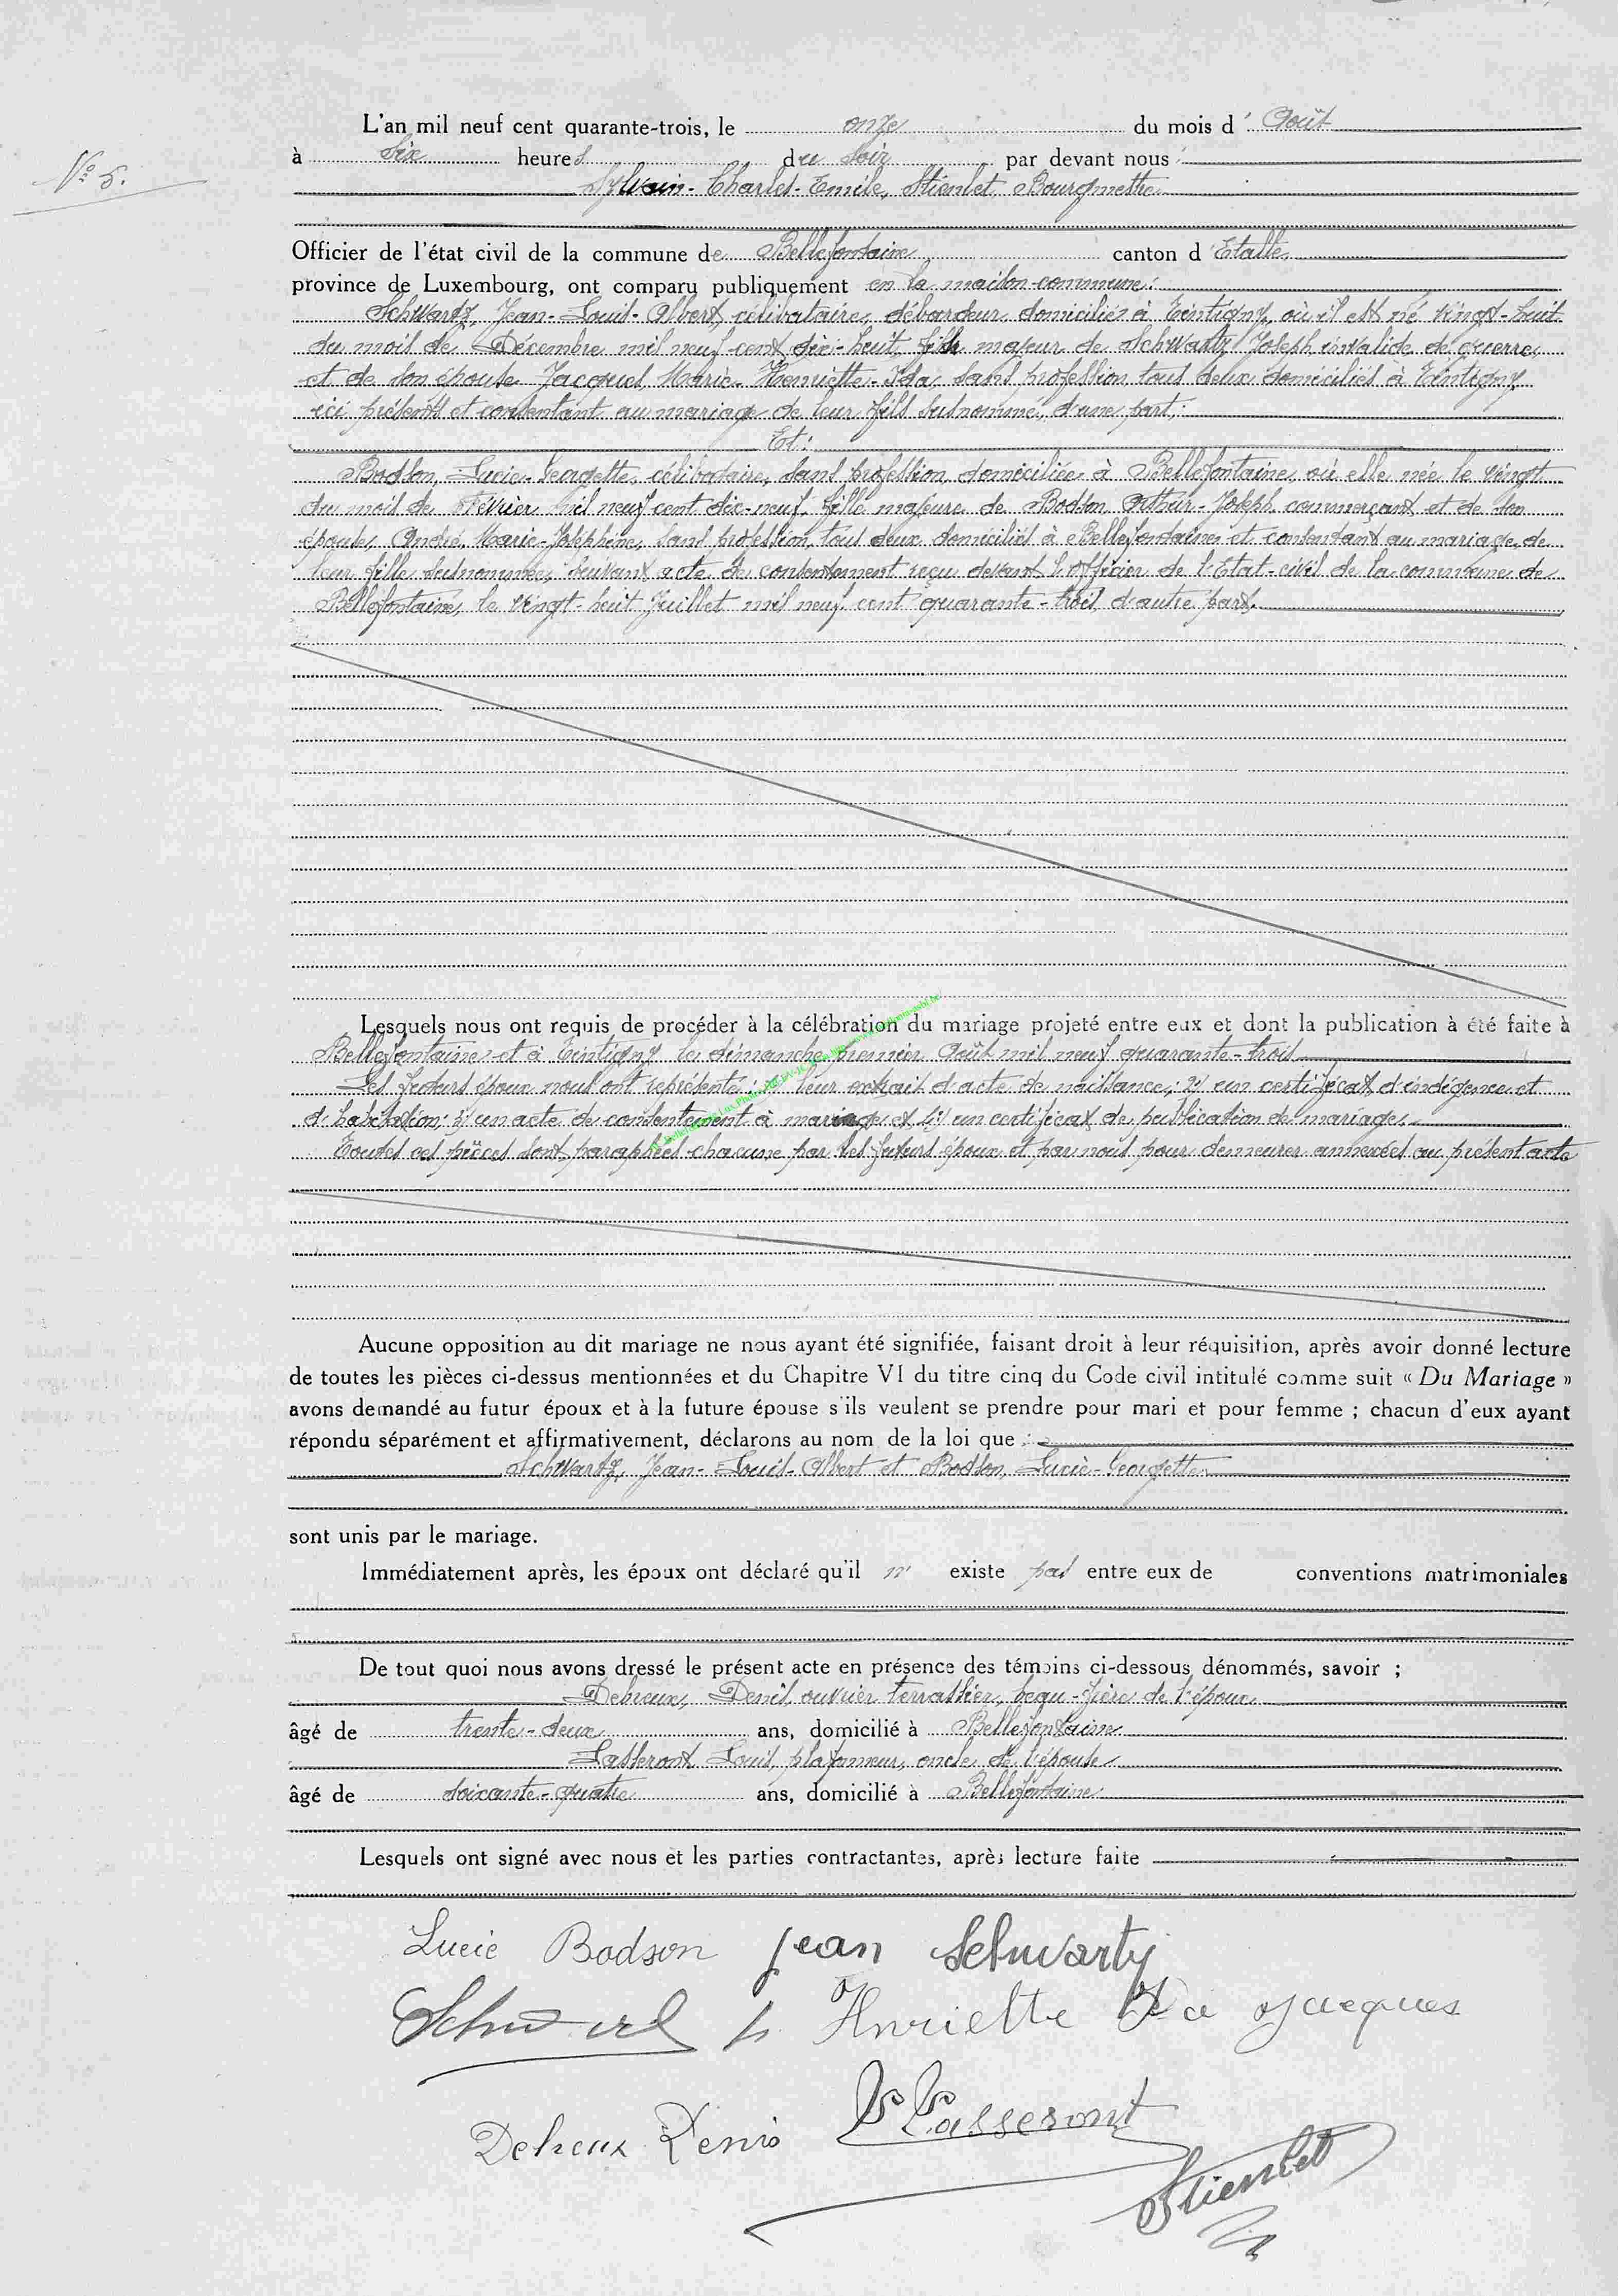 N° 5.
L'an mil neuf cent quarante-trois, le onze du mois d' Août
à six heures du soir par devant nous :
Sylvain-Charles-Emile, Stienlet, Bourgmestre
Officier de l'état civil de la commune de Bellefontaine canton d'Etalle
province de Luxembourg, ont comparu publiquement en la maison-commune :
Schwartz, Jean-Louis-Albert, célibataire, débardeur, domicilié à Tintigny, où il est né vingt-huit
du mois de Décembre mil neuf-cent dix-huit, fils majeur de Schwartz Joseph, invalide de guerre,
et de son épouse Jacques, Marie-Henriette-Ida, sans profession tous deux domiciliés à Tintigny
ici présents et consentant au mariage de leur fils susnommé, d'une part,:
Et :
Bodson, Lucie-Georgette, célibataire, sans profession, domiciliée à Bellefontaine, où elle née le vingt
du mois de Février mil neuf cent dix-neuf, fille majeure de Bodson Arthur-Joseph, commerçant et de son
épouse, André, Marie-Joséphine, sans profession, tous deux domiciliés à Bellefontaine et consentant au mariage de
leur fille susnommée, suivant acte de consentement reçu devant l'officier de l'Etat-civil de la commune de
Bellefontaine, le vingt-huit Juillet mil neuf cent quarante-trois, d'autre part.
Lesquels nous ont requis de procéder à la célébration du mariage projeté entre eux et dont la publication à été faite à
Bellefontaine et à Tintigny le dimanche premier Août mil neuf quarante-trois
Les futurs époux nous ont représenté : 1) leur extrait d'acte de naissance; 2) un certificat d'indigence et
d'habitation; 3) un acte de consentement à mariage et 4) un certificat de publication de mariage.
Toutes ces pièces sont paraphées chacune par les futurs époux et par nous pour demeurer annexées au présent acte
Aucune opposition au dit mariage ne nous ayant été signifiée, faisant droit à leur réquisition, après avoir donné lecture
de toutes les pièces ci-dessus mentionnées et du Chapitre VI du titre cinq du Code civil intitulé comme suit « Du Mariage »
avons demandé au futur époux et à la future épouse s'ils veulent se prendre pour mari et pour femme ; chacun d'eux ayant
répondu séparément et affirmativement, déclarons au nom de la loi que :
Schwartz, Jean-Louis-Albert et Bodson, Lucie-Georgette
sont unis par le mariage.
Immédiatement après, les époux ont déclaré qu'il n' existe pas entre eux de conventions matrimoniales
De tout quoi nous avons dressé le présent acte en présence des témoins ci-dessous dénommés, savoir ;
Deheux, Denis, ouvrier terrassier, beau-frère de l'époux
âgé de trente-deux ans, domicilié à Bellefontaine
Lasseront Louis, plafonneur, oncle de l'épouse
âgé de soixante-quatre ans, domicilié à Bellefontaine
Lesquels ont signé avec nous et les parties contractantes, après lecture faite
Lucie Bodson Jean Schwartz
Henriette Ida Jacques
Deheux Denis L Lasseront
Stienlet